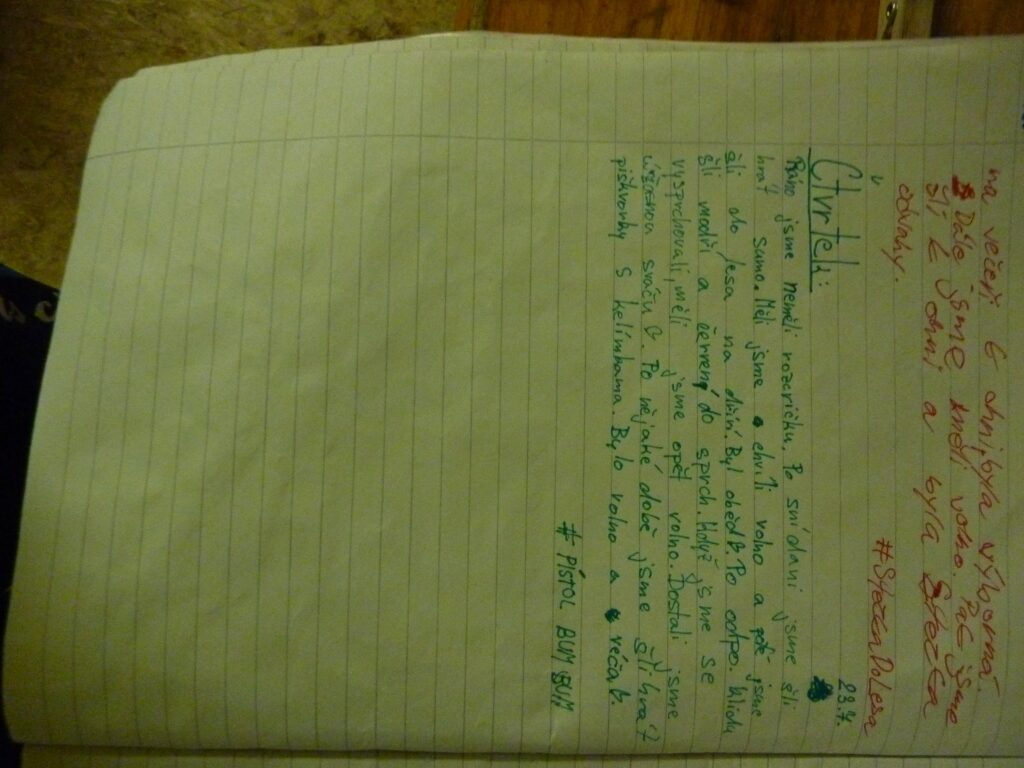 na večeři G ohni, byla výborná.
Dále jsme měli volno. Pak jsme
šli k ohni a byla Stezka
odvahy.
#StezkaDoLesa
23.7.
Čtvrtek:
Ráno jsme neměli rozcvičku. Po snídani jsme šli
hrát sumo. Měli jsme chvíli volno a poté jsme
šli do lesa na dříví. Byl oběd B. Po odpo. klidu
šli modří a červený do sprch. Když jsme se
vysprchovali, měli jsme opět volno. Dostali jsme
úžasnou svaču B. Po nějaké době jsme šli hrát
piškvorky s kelímkama. Bylo volno a večía B.
# PÍSTOL BUM BUM